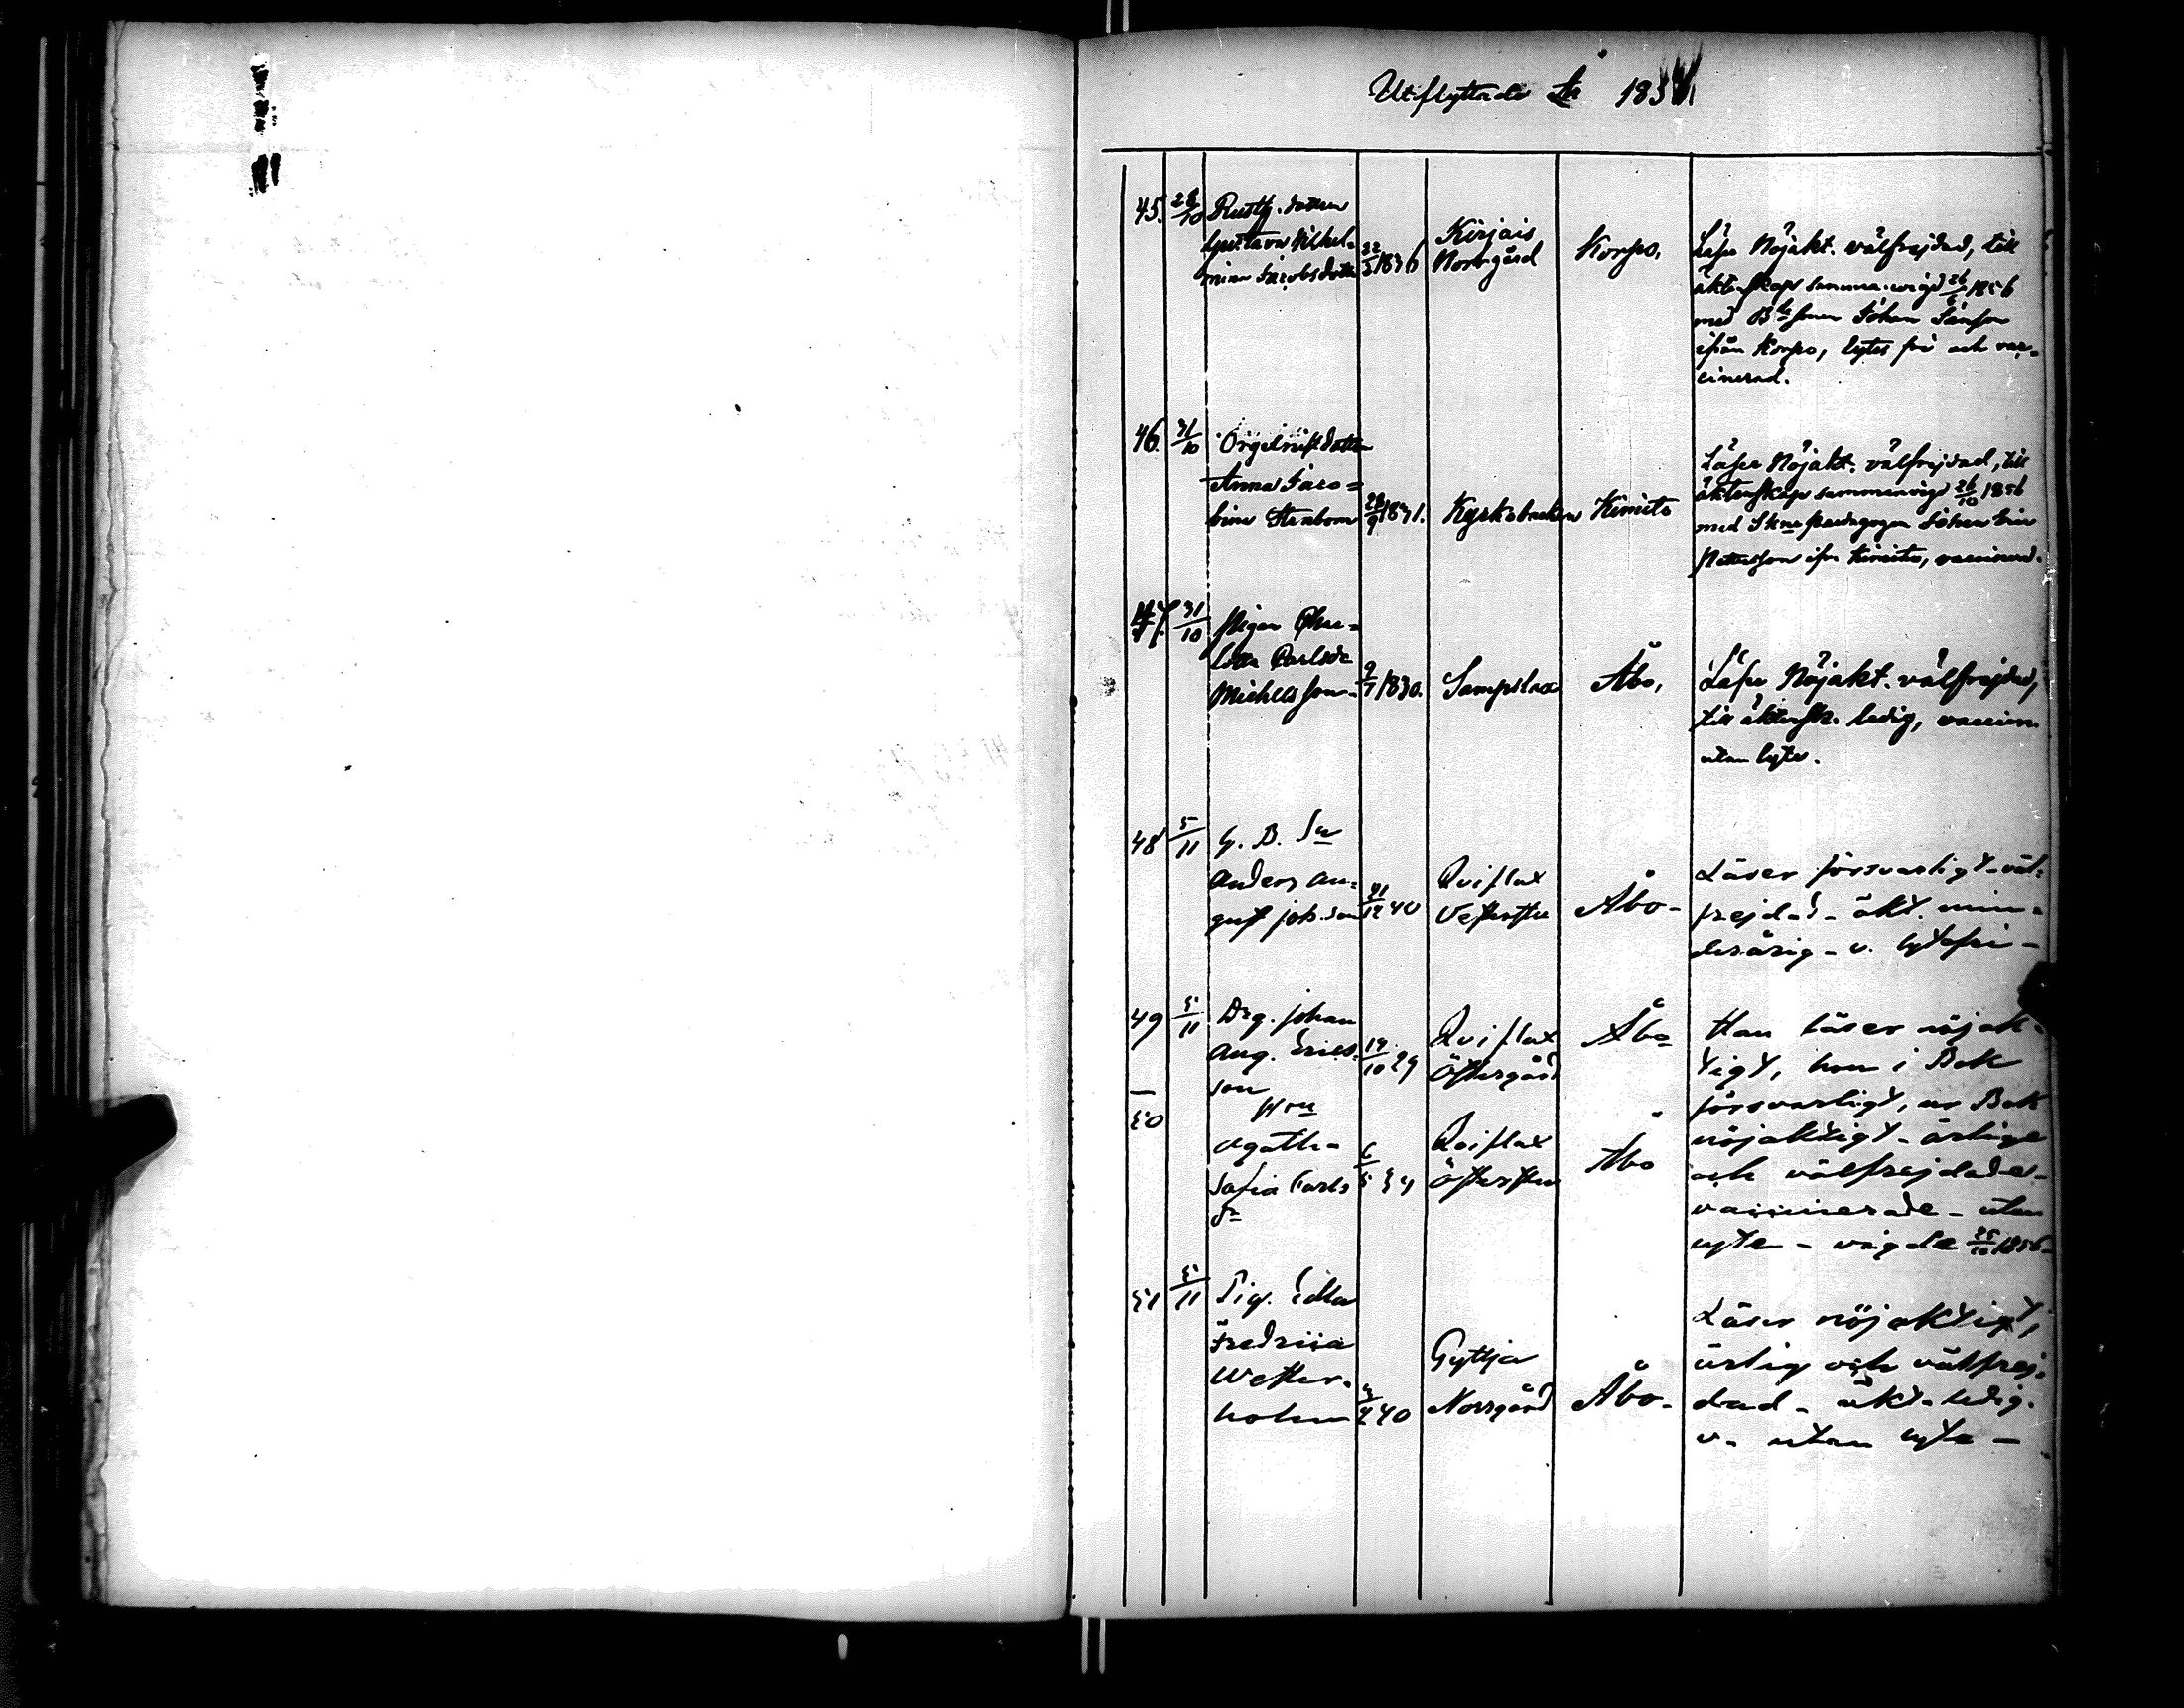 Utflyttade år 185
45. 28/10 Rusth. dottren
Gustava Vilhel-
mina Jacobsdotter 22/5 1836
Kirjais
Norrgård
Korpo.
Läser Nöjakt. välfrejdad, till
äktenskap samma. wigd 26/ 1856
med B sonen Johan
ifrån Korpo, lytes fri och vac-
cinerad.
46. 31/10 Orgelnist dottren
Anna Jaco-
bina 28/9 1831. Kyrkobacken Kimito
Läser Nöjakt. välfrejdad, till
äktenskap sammanvigd 26/10 1856
med Johan
ifrn Kimito, vaccinerad.
47. 31/10 Pigan Char-
lotta Carlsdr
Michelsson 9/7 1830. Sampslax Åbo.
Läser Nöjakt. välfrejdad,
till äktensk. ledig, vaccin.
utan lyte.
48 5/11 G. B. Sn
Anders Au-
gust Joh. son 21/12 40
Qviflax
Vesterstu
Åbo-
Läser försvarligt - väl-
frejdad - äkt. min-
derårig - v. lytesfri -
49 5/11 Drg. Johan
Aug. Erics-
son 19/10 29
Qviflax
Östergård
Åbo
Han läser nöjak-
tigt, hon i Bok
försvarligt, ur Bok
nöjaktigt - ärlige
och välfrejdade -
vaccinerade - utan
lyte - vigde 25/10 1856 -
50
Agatha
Sofia Carls
dr 6/5 34
Qviflax
Österstu
Åbo
51 5/11 Pig. Edla
Fredrica
Wetter-
holm 4 40
Gyttja
Norrgård
Åbo-
Läser nöjaktigt,
ärlig och välfrej-
dad - äkt. ledig.
v. utan lyte -